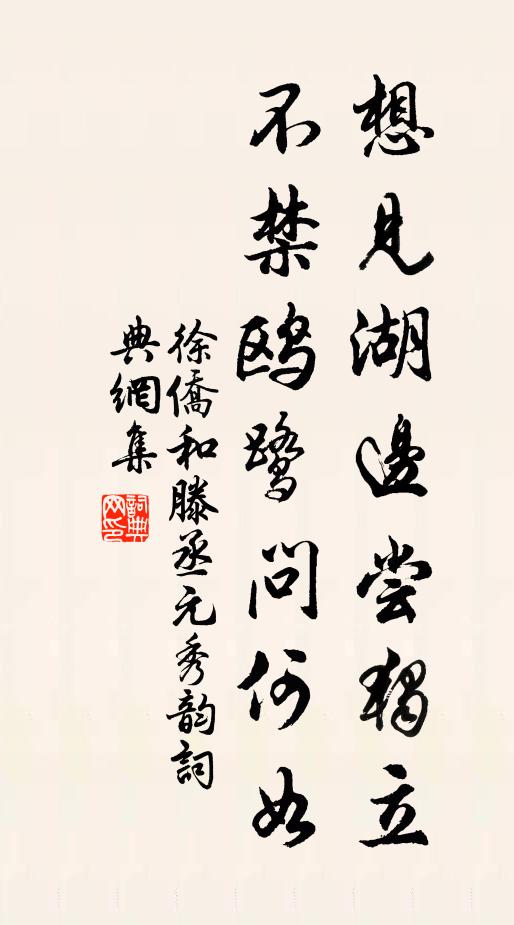 想見湖邊嘗獨立
不禁鸥鹭問何如
徐僑和滕丞元秀韵詞
典網集
詞典网印